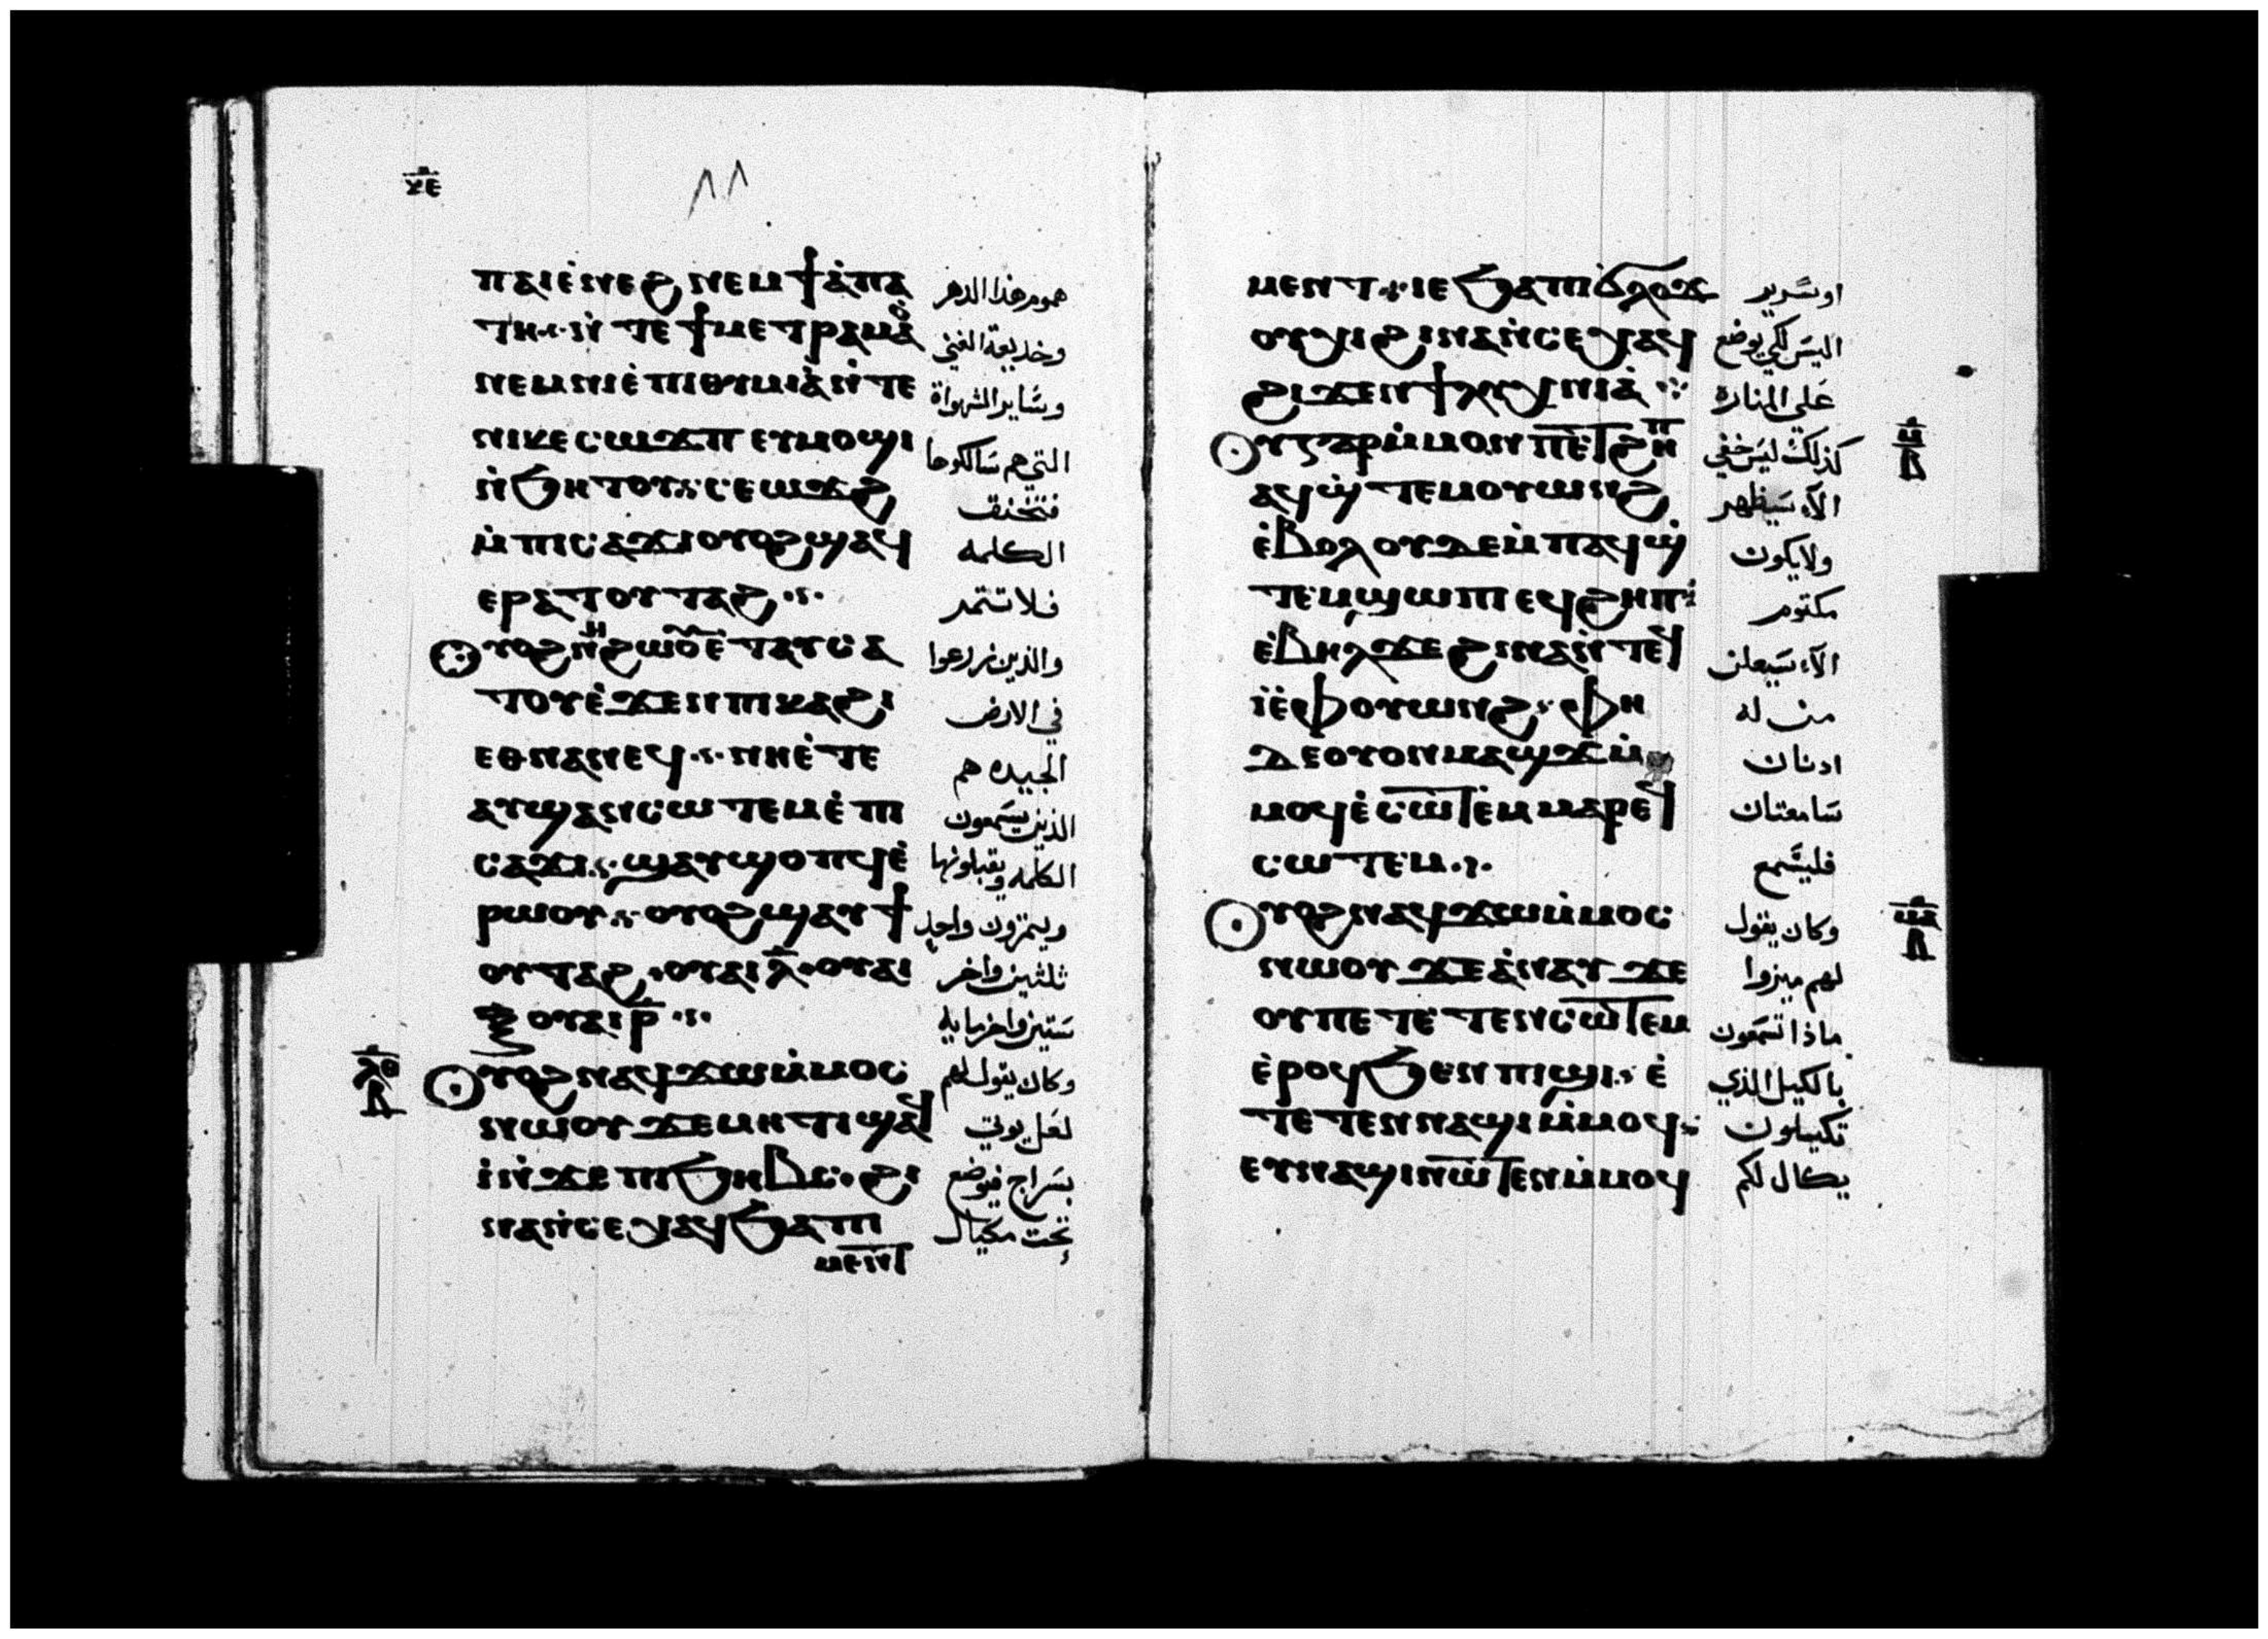 ⲝⲉ
٨٨
ⲡⲁⲓⲉ̀ⲛⲉϩ ⲛⲉⲙ ϯⲁ̀ⲡⲁ هموم هذا الدهر
ⲧⲏ · ⲛ̀ⲧⲉ ϯⲙⲉⲧⲣⲁⲙⲁⲟ̀ وخديعة الغني
ⲛⲉⲙ ⲛⲓⲉ̀ⲡⲓⲑⲩⲙⲓⲁ̀ ⲛ̀ⲧⲉ وساير الشهواة
ⲛⲓⲕⲉⲥⲱϫⲡ ⲉⲩⲙⲟϣⲓ التي هم سالكوها
ⲛ̀ϧⲏⲧⲟⲩ ⲥⲉⲱϫϩ فتختنق
ⲙ̀ⲡⲓⲥⲁϫⲓ ⲟⲩⲟϩ ϣⲁϥ الكلمه
ⲉⲣⲁⲧⲟⲩⲧⲁϩ فلا تثمر
ⲟⲩⲟϩ ⲛⲏ ϩⲱⲟⲩ ⲉ̀ⲧⲁⲩⲥⲁ والذين زرعوا
ⲧⲟⲩ ⲉ̀ϫⲉⲛ ⲡⲓⲕⲁϩⲓ في الارض
ⲉⲑⲛⲁⲛⲉϥ ⲛⲏⲉ̀ⲧⲉ الجيده هم
ⲁⲩϣⲁⲛⲥⲱⲧⲉⲙ ⲉ̀ⲡⲓ الذين يسمعون
ⲥⲁϫⲓ ϣⲁⲩϣⲟⲡϥ ⲉ̀ الكلمه ويقبلونها
ⲣⲱⲟⲩ ⲟⲩⲟϩ ϣⲁⲩϯ ويثمرون واحد
ⲟⲩⲧⲁϩ · ⲟⲩⲁⲓ ⲗ̅ · ⲟⲩⲁⲓ ثلثين واخر
ⲝ̅ ⲟⲩⲁⲓ ⲣ̅ ستين واخر مايه
ⲗⲑ
ⲟⲩⲟϩ ⲛⲁϥϫⲱ ⲙ̀ⲙⲟⲥ وكان يقول لهم
ⲛⲱⲟⲩ ϫⲉ ⲙⲏⲧⲓ ϣⲁϥ لعل يوتي
ⲓ̀ ⲛ̀ϫⲉ ⲡⲓϧⲏⲃⲥ · ϩⲓ بسراج فيوضع
ⲛⲁ ⲛ̀ⲥⲉⲭⲁϥ ϧⲁ ⲡⲓ تحت مكيال
ⲙⲉⲛⲧ
ⲙⲉⲛⲧ ⲓⲉ ϧⲁ ⲡⲓϭⲗⲟϫ او سرير
ⲟⲩⲭⲓ ϩⲓⲛⲁ ⲛ̀ⲥⲉⲭⲁϥ اليس لكي يوضع
ϩⲓϫⲉⲛ ϯⲗⲩⲭⲛⲓⲁ̀ علي المناره
ⲙ̅
ⲟⲩ ⲅⲁⲣ ⲙ̀ⲙⲟⲛ ⲡⲉⲧϩⲏⲡ كذلك ليس خفي
ⲁϥϣ̀ⲧⲉⲙⲟⲩⲱⲛϩ الا سيظهر
ⲉ̀ⲃⲟⲗ ⲟⲩⲇⲉ ⲙ̀ⲡⲁϥϣ̀ ولا يكون
ⲧⲉⲙϣⲱⲡⲓ ⲉϥϩⲏⲡ مكتوم
ⲉ̀ⲃⲏⲗ ϫⲉ ϩⲓⲛⲁ ⲛ̀ⲧⲉϥ الا سيعلن
ⲓ̀ ⲉ̀ⲫⲟⲩⲱⲛϩ · ⲫⲏ من له
ⲇⲉ ⲟⲩⲟⲛ ⲙⲁϣϫ ⲙ̀ ادنان
ⲙⲟϥ ⲉ̀ⲥⲱⲧⲉⲙ ⲙⲁⲣⲉϥ سامعتان
ⲥⲱⲧⲉⲙ فليسمع
ⲙⲁ
ⲟⲩⲟϩ ⲛⲁϥϫⲱ ⲙ̀ⲙⲟⲥ وكان يقول
ⲛⲱⲟⲩ ϫⲉ ⲁ̀ⲛⲁⲩ ϫⲉ لهم ميزوا
ⲟⲩ ⲡⲉⲧⲉⲧⲉⲛⲥⲱⲧⲉⲙ ماذا تسمعون
ⲉ̀ⲣⲟϥ ϧⲉⲛ ⲡⲓϣⲓ ⲉ̀ بالكيل الذي
ⲧⲉⲧⲉⲛⲛⲁϣⲓ ⲙ̀ⲙⲟϥ تكيلون
ⲉⲩⲛⲁϣⲓ ⲛⲱⲧⲉⲛ ⲙ̀ⲙⲟϥ يكال لكم